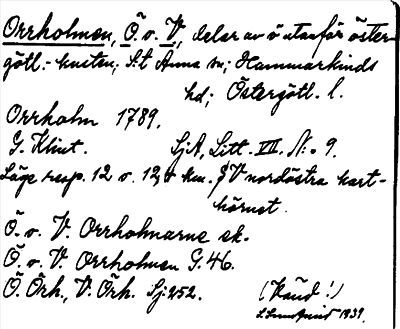 Orrholmen, Ö. o. V., delar av ö utanför öster-
götl.-kusten; S:t Anna sn; Hammarkinds
hd; Östergötl. l.
Orrholm 1789.
G. Klint. SjA, Litt. VII. N:o 9.
Läge resp. 12 o. 12, km. SV nordöstra kart-
hörnet.
Ö. o. V. Orrholmarne ek.
Ö. o. V. Orrholmen G. 46.
Ö. Orh., V. Orh. Sj. 252. (Känd!)
1939.